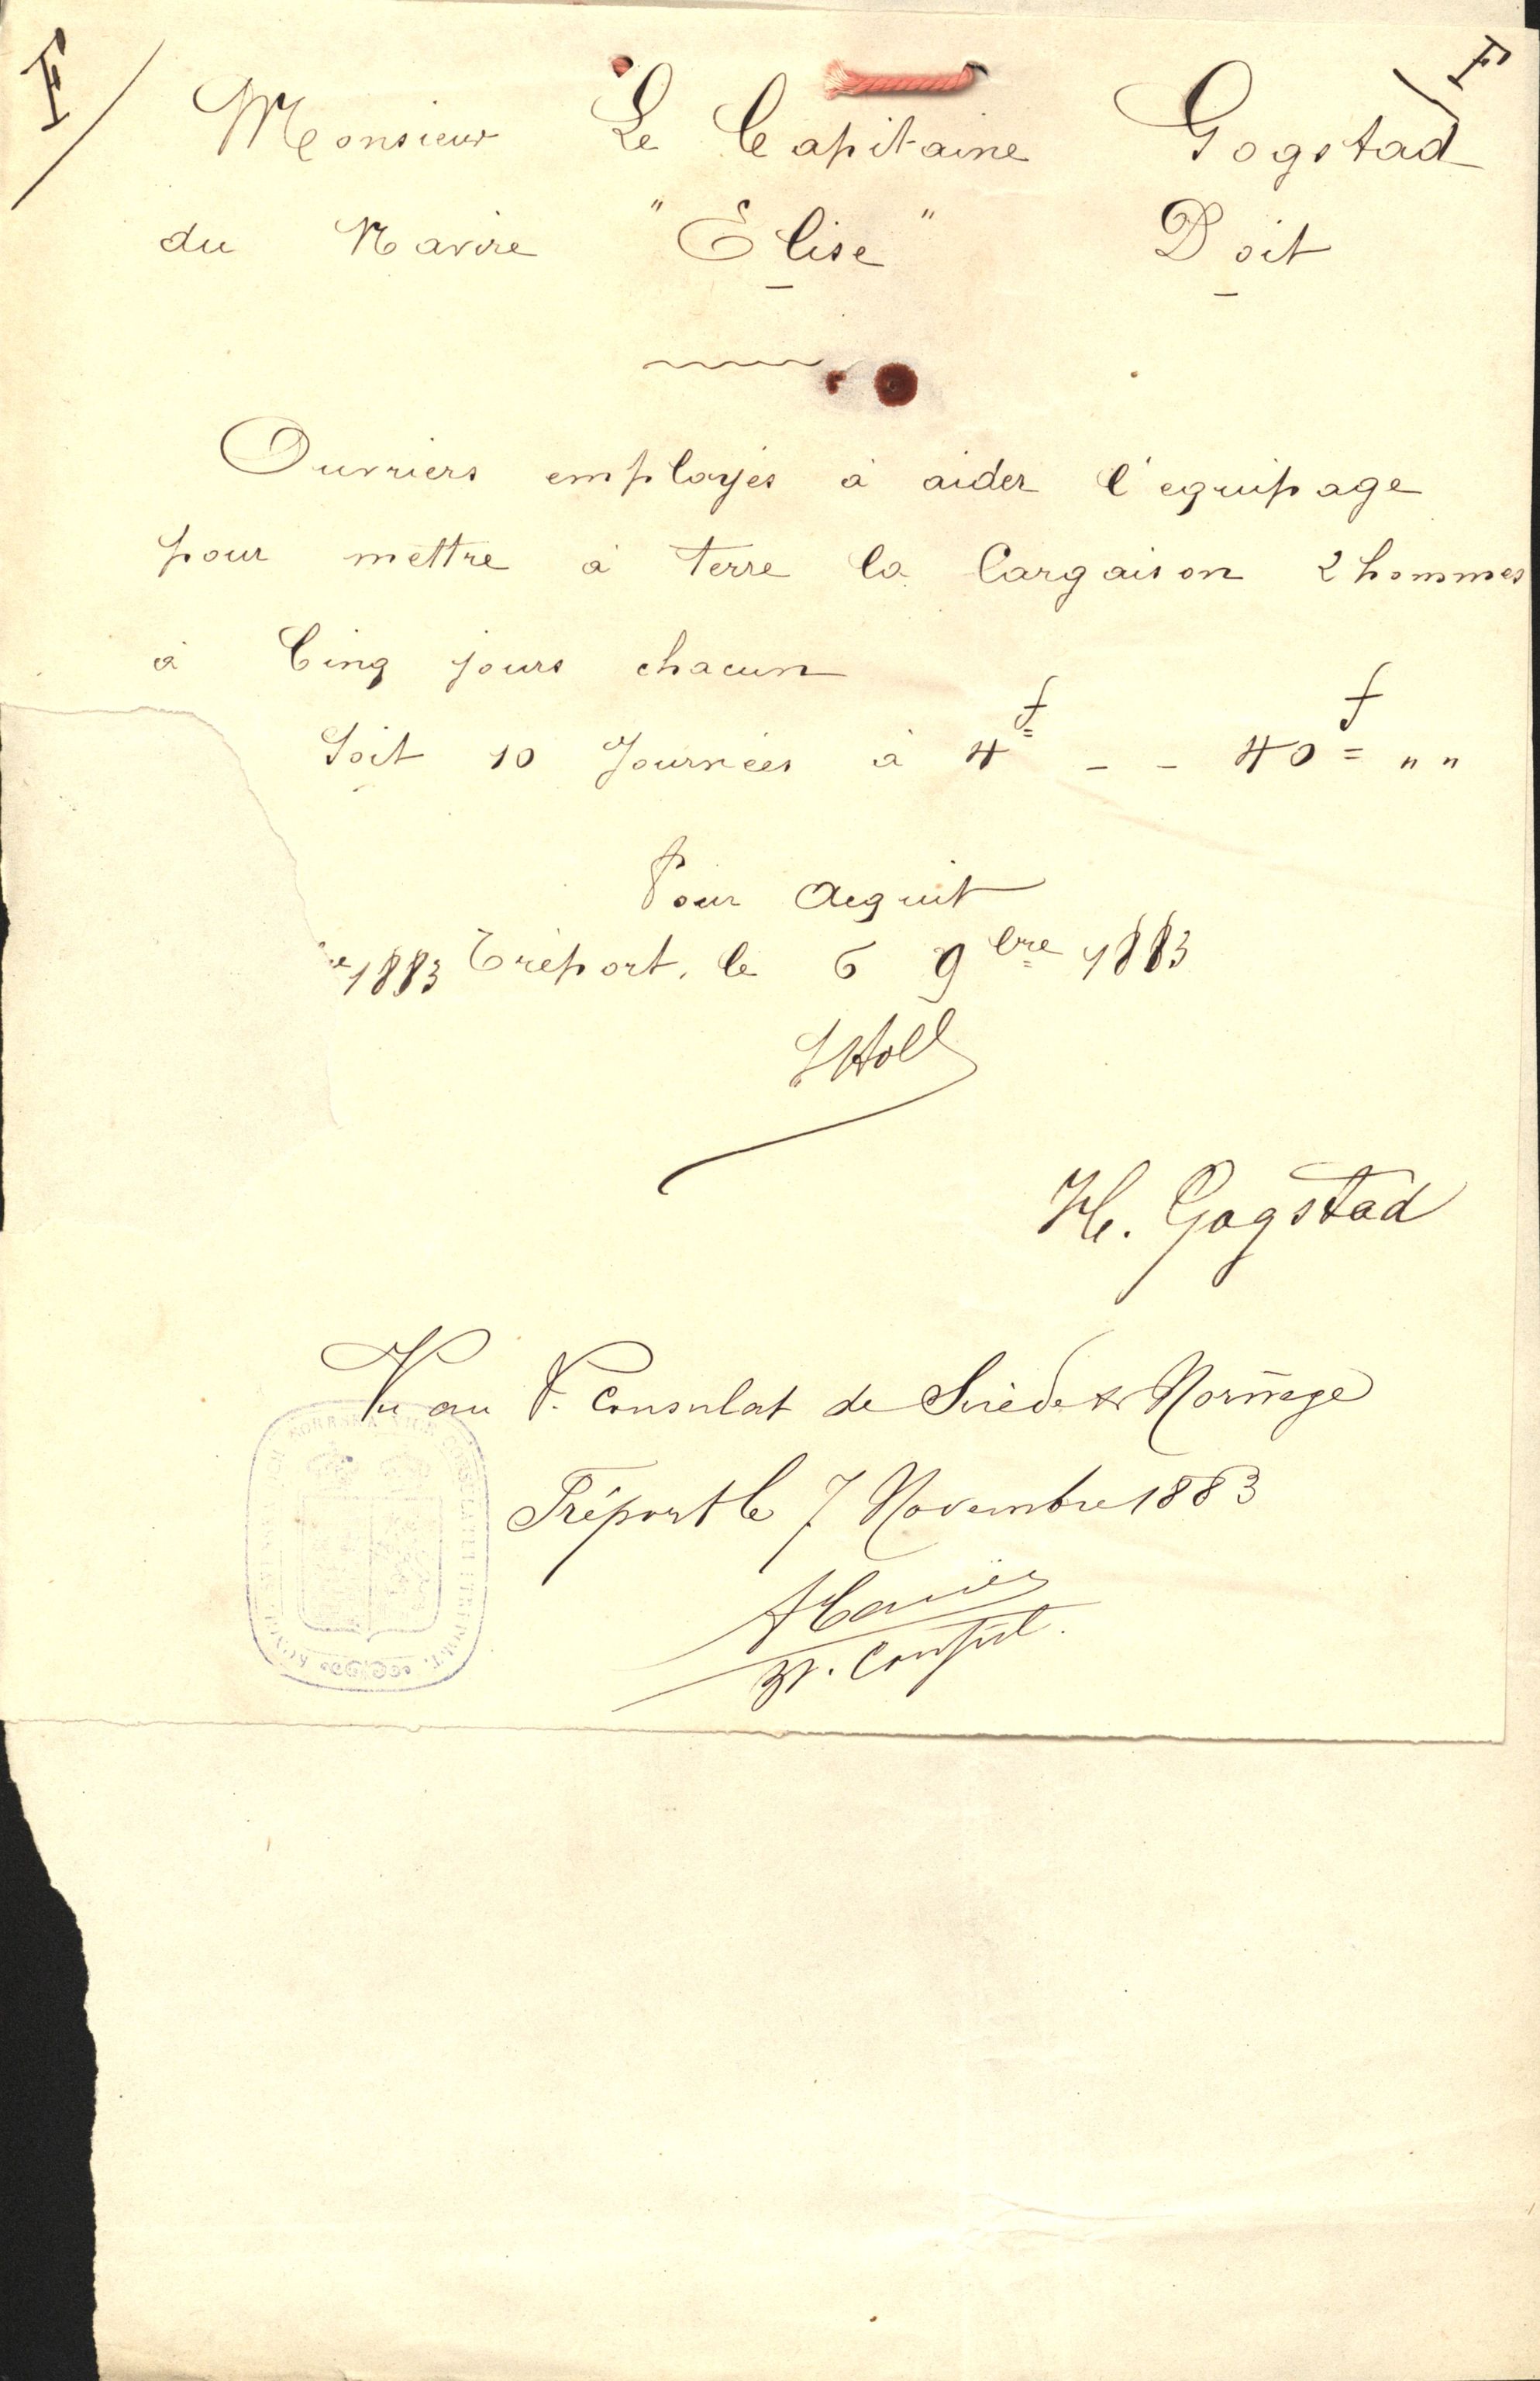 F F
Monsieur Le Capitaine Gogstad
du Navire "Elise" Doit
Ouvriers employés à aider l'equipage
pour mettre à terre la Cargaison 2 hommes
à Cinq jours chacun
Soit 10 Journées à 4f - - 40f = " "
Pour Acquit
1883 Tréport, le 6 9bre 1883
H. Gogstad
Vu au V. Consulat de Suède & Norvège
Tréport le 7 Novembre 1883
V. Consul.